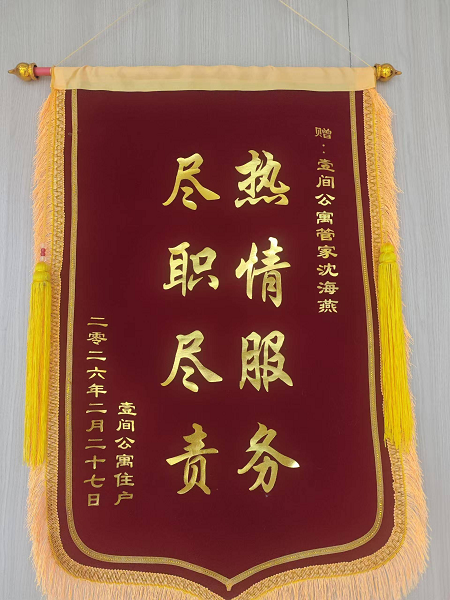 赠：壹间公寓管家沈海燕
热情服务
尽职尽责
壹间公寓住户
二零二六年二月二十七日